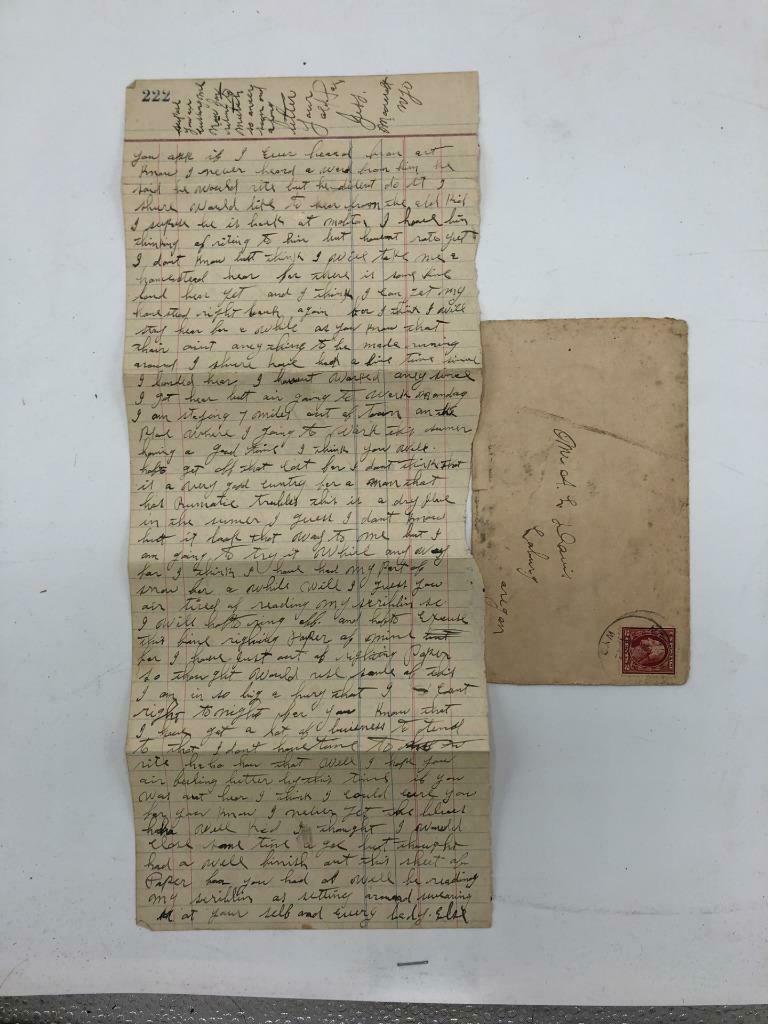 222
you ask if I Ever heard from art
Know I never heard a word from him he
said he would rite but he dident do it I
shure would like to hear from the old Kid
I supose he is back at I have bin
thinking of riting to him but havent rote yet
I dont know but think I will take me a
homestead hear for there is some fine
land hear yet and I think I can get my
homestead right back again for I think I will
stay hear for a while as you know that
thair aint aneything to be made runing
around I shure have had a fine time since
I landed hear I havent worked aney since
I got hear but air going to work monday
I am staying 7 miles out of town on the
where I going to work this sumer
having a good time I think you will
hafto get off that cost for I dont think that
is a very good cuntry for a man that
has Rumatic trubles this is a dry place
in the sumer I guess I dont know
but it look that way to me but I
am going to try it a while any way
for I think I have had my Part of
snow for a while well I guess you
air tired of reading my scriblin so
I will hafto ring off and hafto Excuse
this fine righting Paper of mine
for I have just out of righting Paper
so thought would use some of this
I am in so big a hury that I cant
right to night for you know that
I have got a lot of buisness to atend
to that I dont have time to
rite Well I hope you
air feeling better by this time if you
was out hear I think I could cure you
for you know I never get the blues
well Kid I thought I would
close some time a go but thought
had a well finish out this sheet of
Paper for you had as well be reading
my scriblin as setting around swearing
at your self and every body Else
letter
your
old Pal
Jess
L Davis
oregon